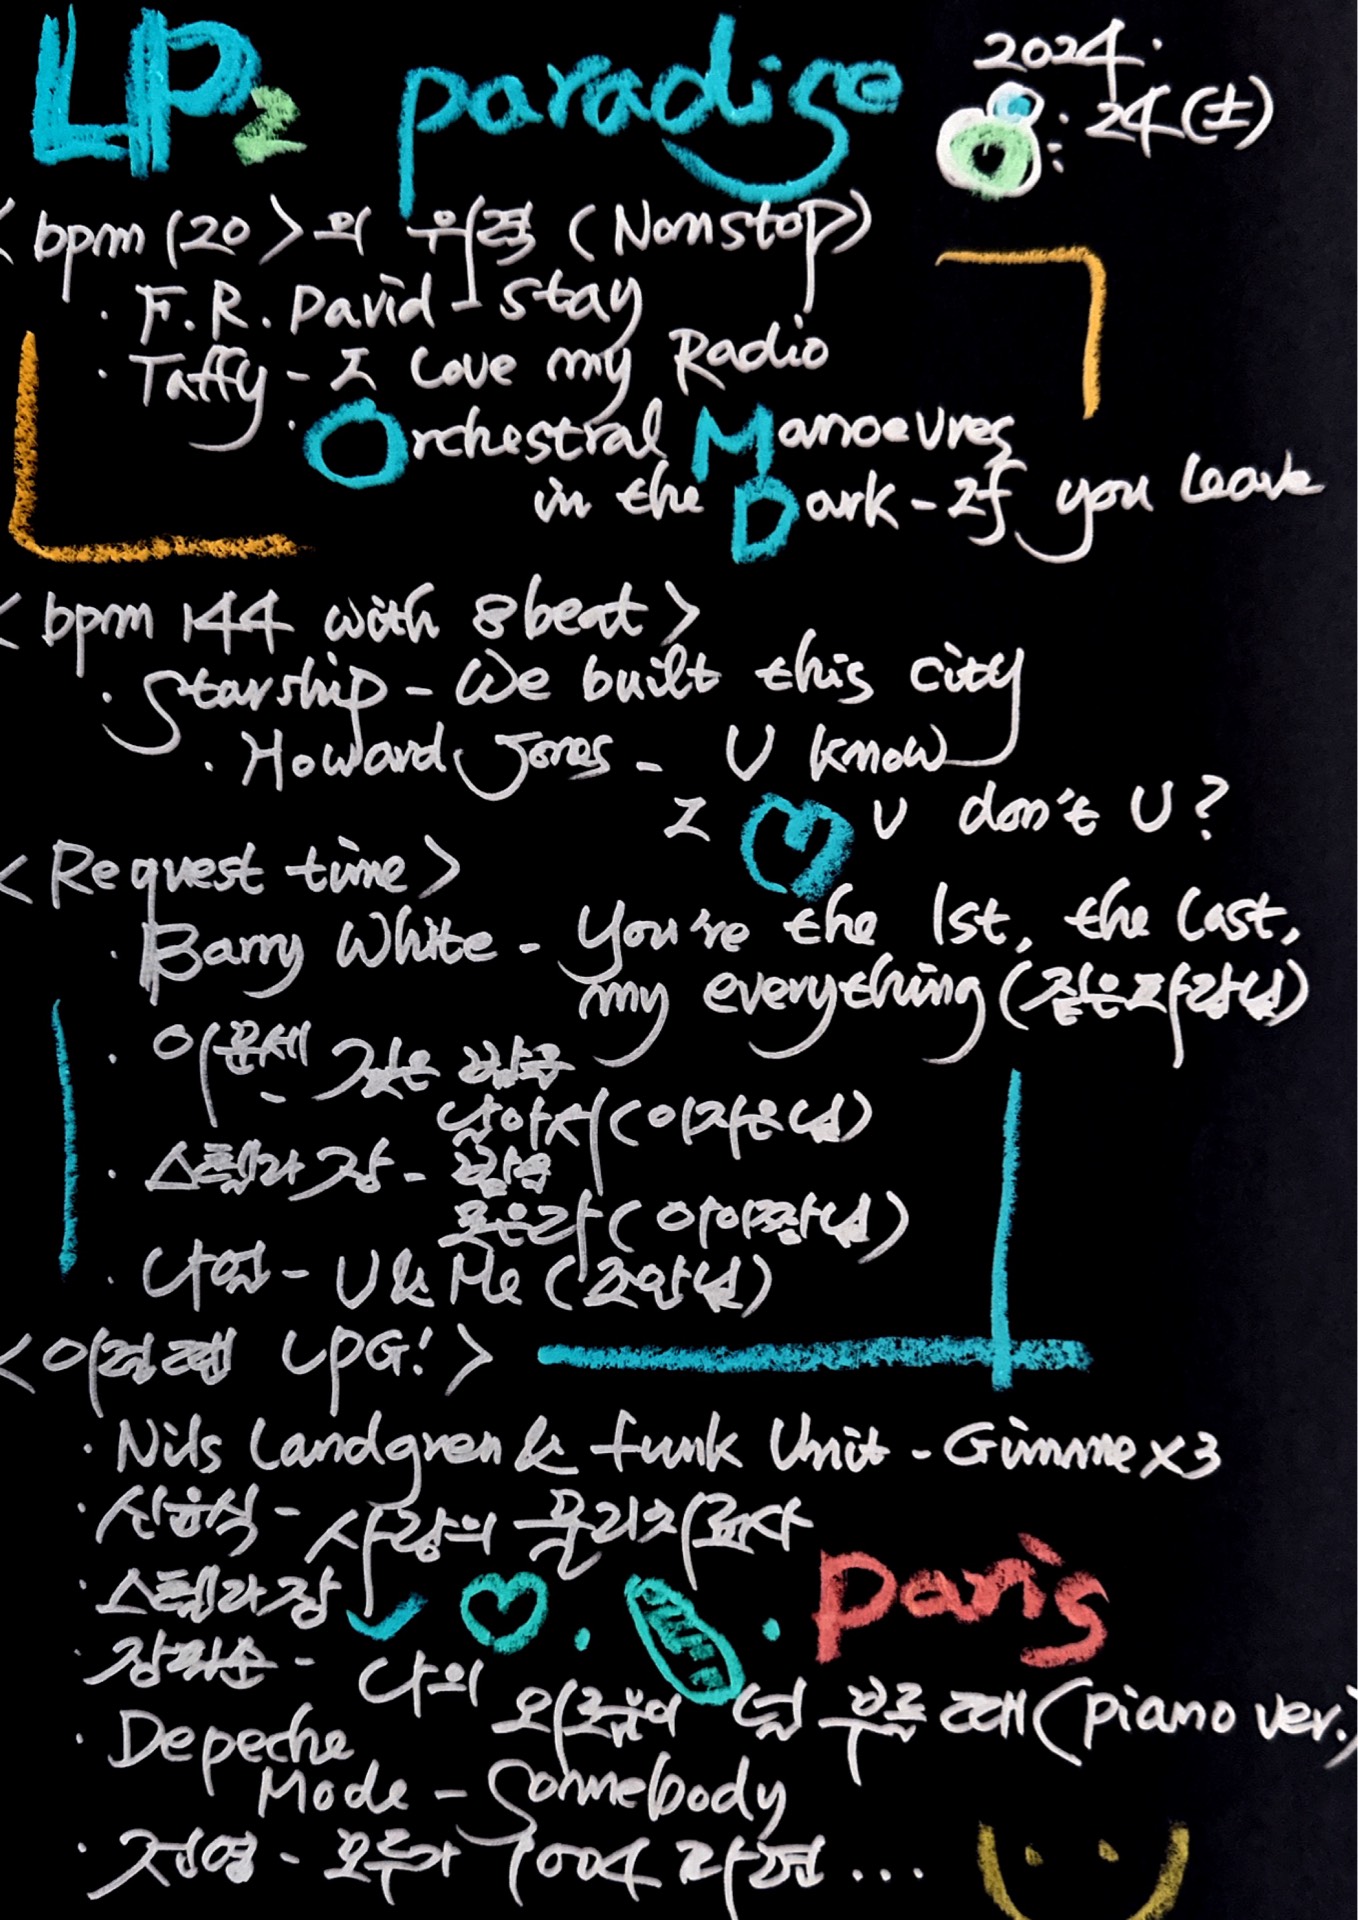 LP2 paradise
2024.
8. 24(土)
<bpm 120>의 위력 (Nonstop)
· F.R. David - Stay
· Taffy - I Love my Radio
· Orchestral Manoeuvres
in the Dark - If you leave
<bpm 144 with 8beat>
· Starship - We built this city
· Howard Jones - U know
I ♡ U don't U?
<Request time>
· Barry White - You're the 1st, the last,
my everything (짙은파랑님)
· 이문세 - 깊은 밤을
날아서 (이지은님)
· 스텔라장 -
(아이짱님)
· 나얼 - U & Me (조안님)
<이럴땐 LPG!>
· Nils Landgren & funk Unit - Gimme x3
· 신승식 - 사랑의 물리치료사
· 스텔라장 ♡ . . Paris
· 장필순 - 나의 외로움이 널 부를 때 (piano ver.)
· Depeche
Mode - Somebody
· 전영 - 모두가 1004라면 ...